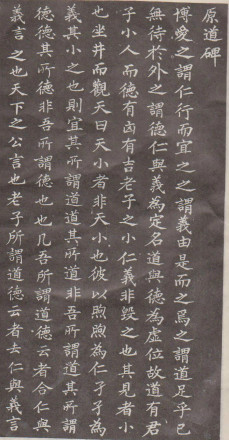 原道碑
博愛之謂仁行而宜之之謂義由是而之焉之謂道足乎已
無待於外之謂德仁與義為定名道與德為虛位故道有君
子小人而德有凶有吉老子之小仁義非毀之也其見者小
也坐井而觀天曰天小者非天小也彼以煦煦為仁孑孑為
義其小之也則宜其所謂道道其所道非吾所謂道其所謂
德德其所德非吾所謂德也也凡吾所謂道德云者合仁與
義言之也天下之公言也老子所謂道德云者去仁與義言